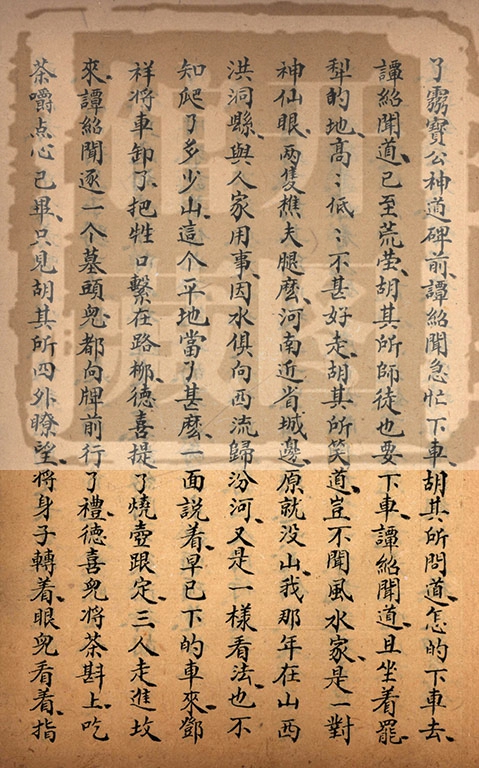 了霱寳公神道碑前、譚紹聞急忙下車、胡其所問道、怎的下車去、
譚紹聞道、已至荒茔、胡其所師徒也要下車、譚紹聞道、且坐着罷、
犁的地、高〻低〻不甚好走、胡其所笑道、豈不聞風水家、是一對
神仙眼、兩隻樵夫腿麽、河南近省城邊、原就没山、我那年在山西
洪洞縣、與人家用事、因水俱向西流歸汾河、又是一樣看法、也不
知爬了多少山、這个平地當了甚麽、一面説着、早已下的車來、鄧
祥將車卸了、把牲口繫在路栁、德喜提了燒壺跟定、三人走進坟
來、譚紹聞逐一个墓頭兒都向牌前行了禮、德喜兒將茶斟上、吃
茶嚼点心已畢、只見胡其所四外瞭望、將身子轉着、眼兒看着、指